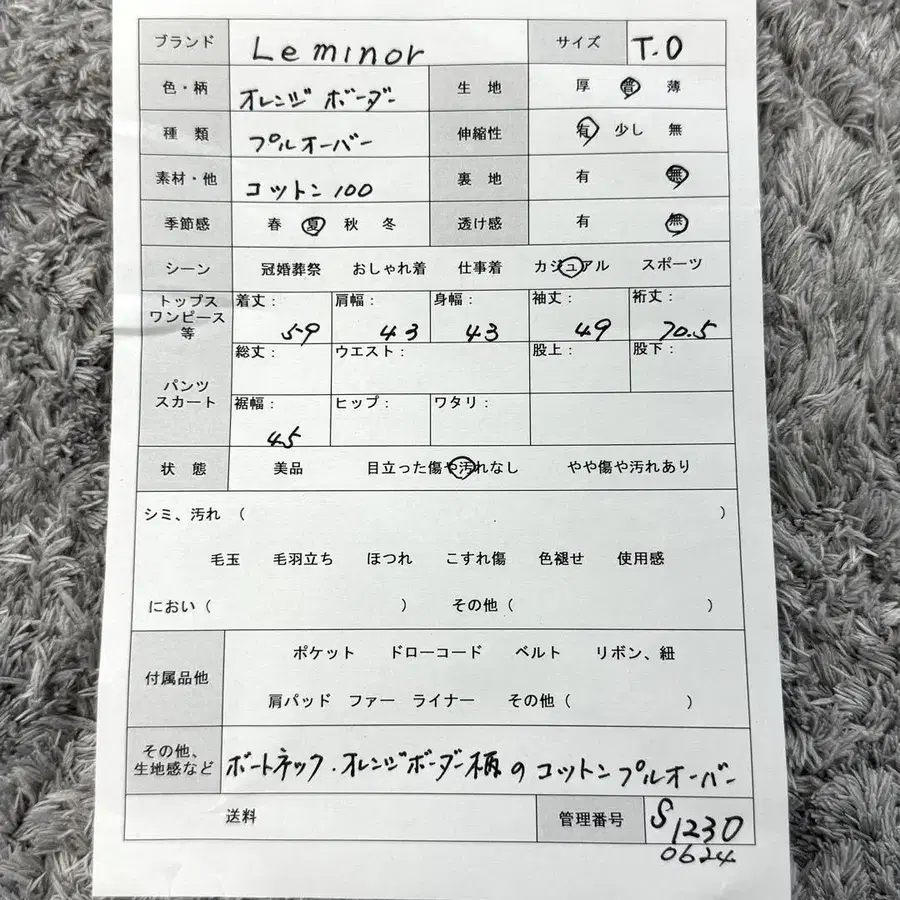 ブランド Le minor サイズ T.0
色・柄 オレンジ ボーダー 生地 厚 普 薄
種類 プルオーバー 伸縮性 有 少し 無
素材・他 コットン 100 裏地 有 無
季節感 春 夏 秋 冬 透け感 有 無
シーン 冠婚葬祭 おしゃれ着 仕事着 カジュアル スポーツ
トップス ワンピース 等 着丈: 59 肩幅: 43 身幅: 43 袖丈: 49 裄丈: 70.5
パンツ スカート 総丈: ウエスト: 股上: 股下:
裾幅: 45 ヒップ: ワタリ:
状態 美品 目立った傷や汚れなし やや傷や汚れあり
シミ、汚れ ( )
毛玉 毛羽立ち ほつれ こすれ傷 色褪せ 使用感
におい ( ) その他 ( )
付属品他 ポケット ドローコード ベルト リボン、紐
肩パッド ファー ライナー その他 ( )
その他、生地感など ボートネック.オレンジボーダー柄のコットンプルオーバー
送料 管理番号 S1230
0624